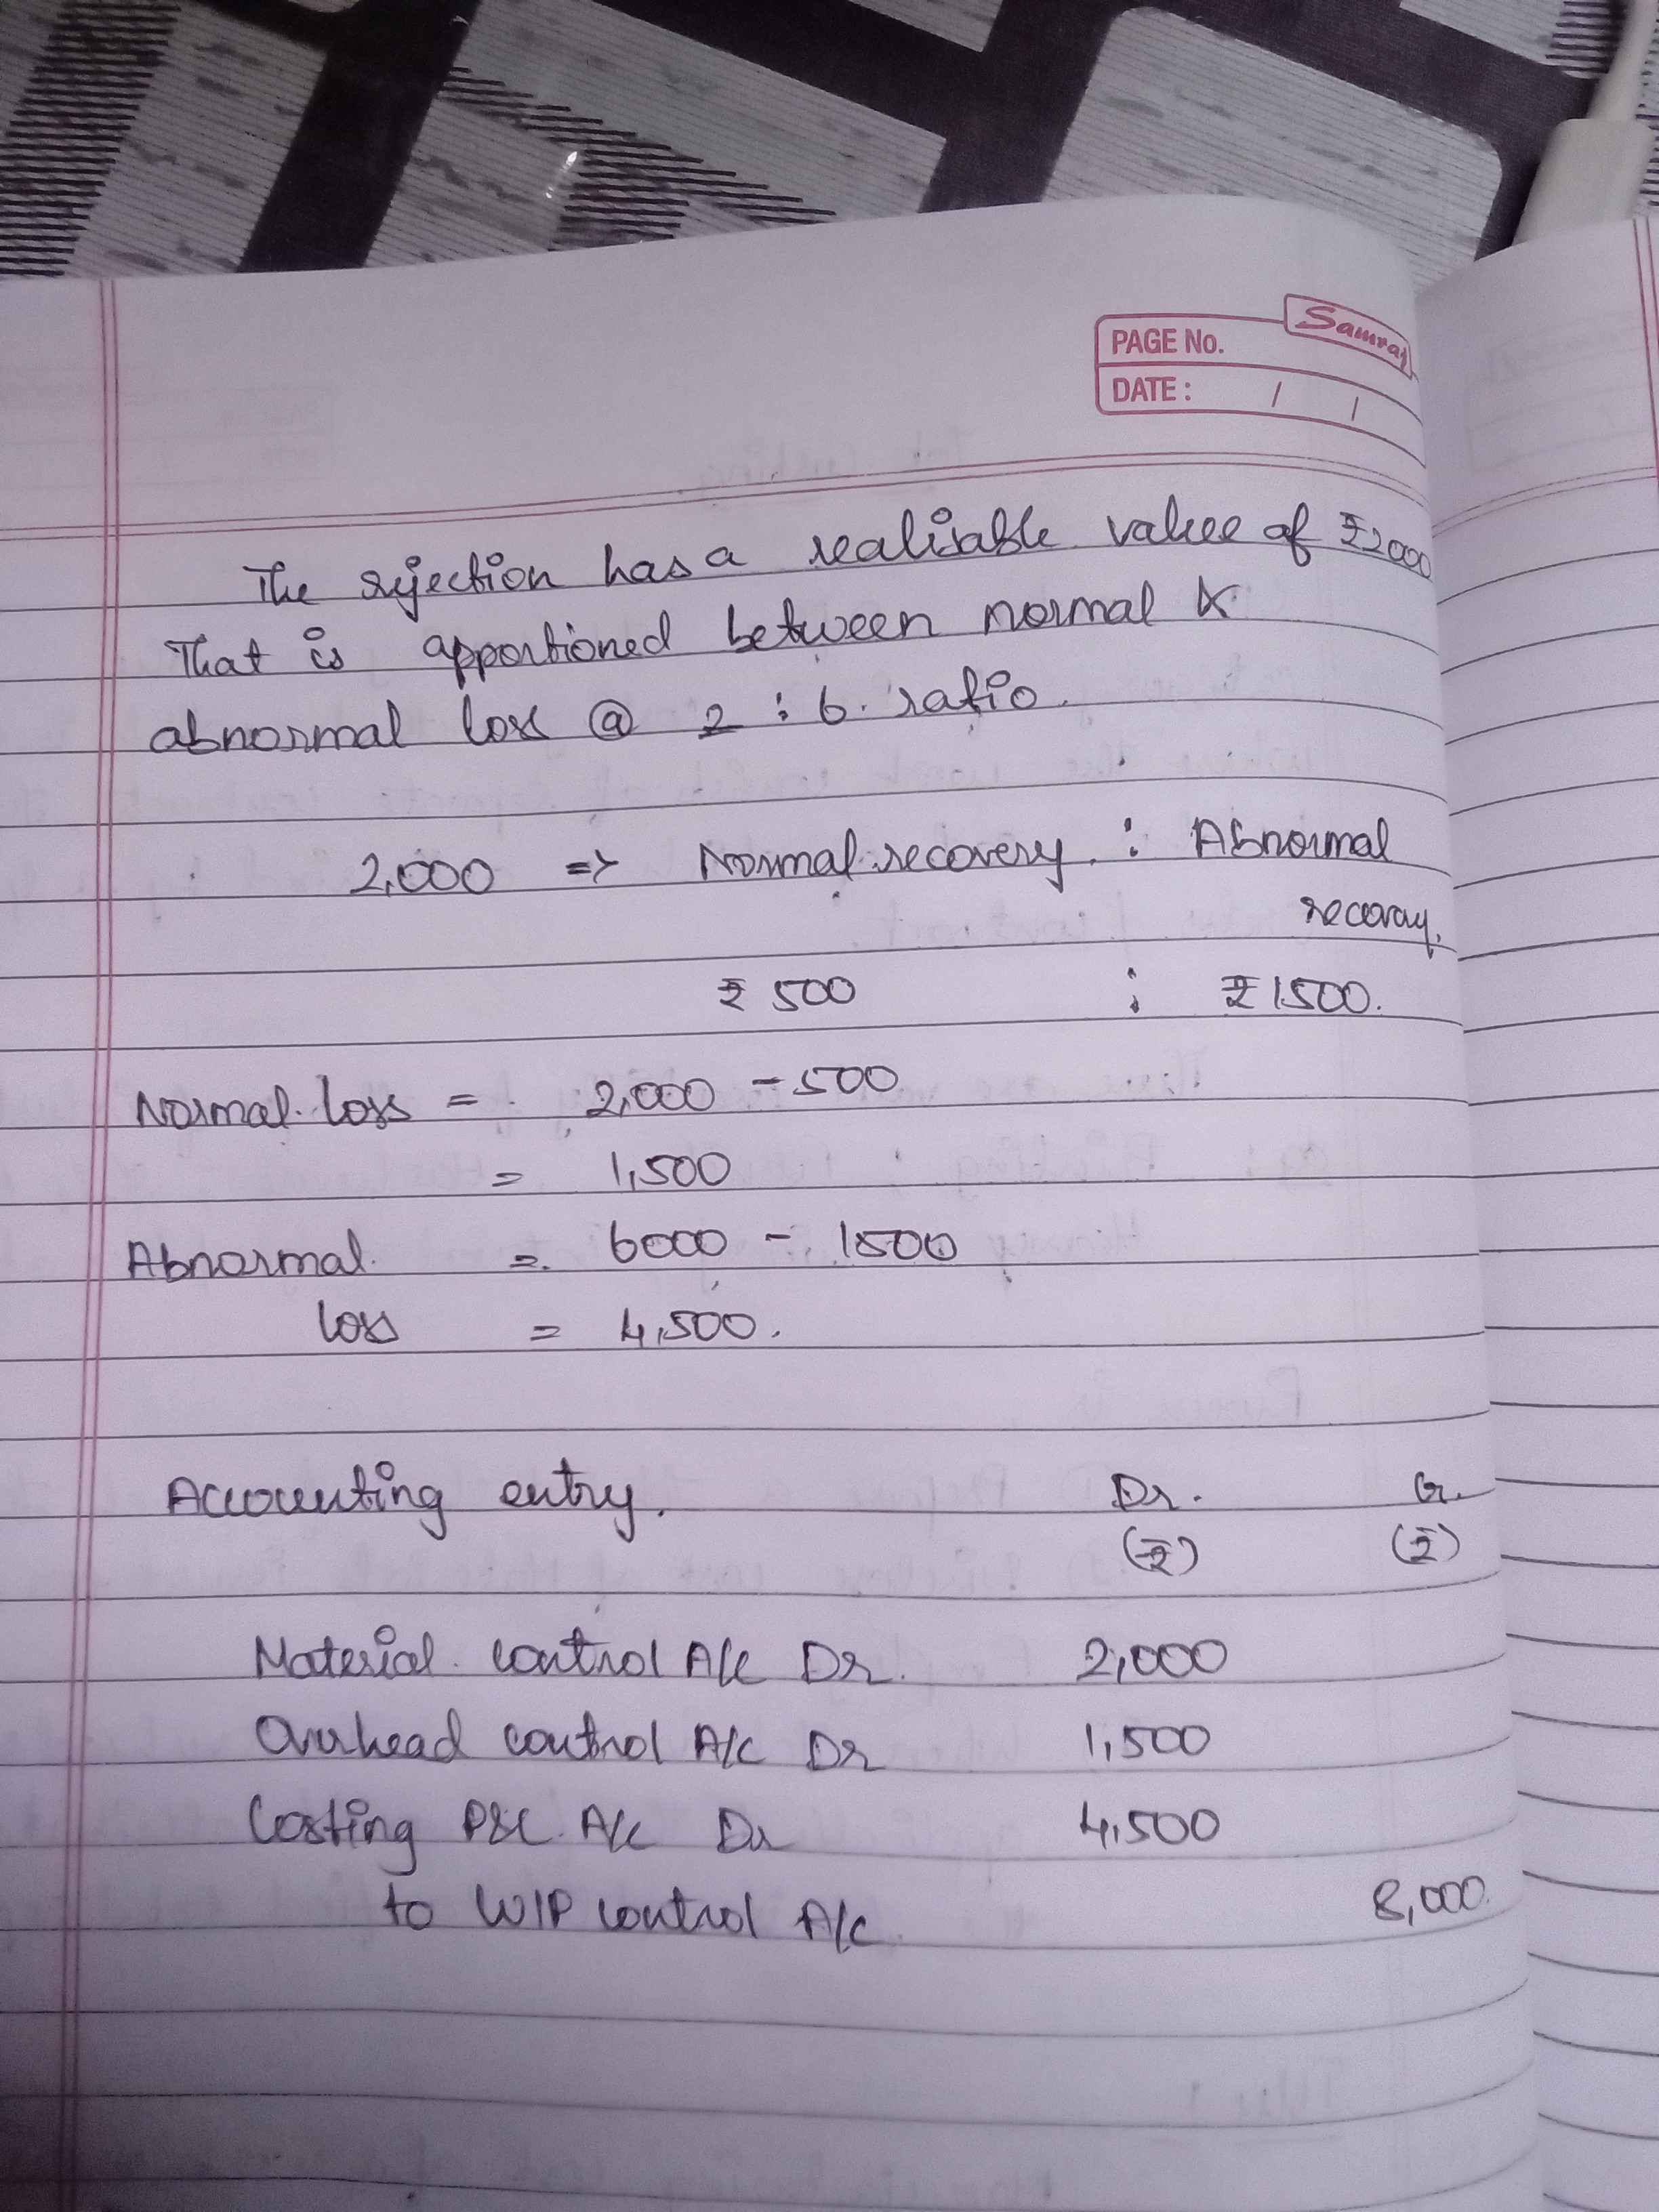 Samraj
PAGE No.
DATE : / /
The rejection has a realisable value of ₹2000
That is apportioned between normal &
abnormal loss @ 2 : 6. ratio.
2,000 => Normal recovery : Abnormal
recovery,
₹ 500 : ₹ 1500.
Normal loss = 2,000 - 500
= 1,500
Abnormal = 6000 - 1500
loss = 4,500.
Accounting entry. Dr. Cr.
(₹) (₹)
Material control A/c Dr. 2,000
Overhead control A/c Dr 1,500
Costing P&L A/c Dr 4,500
to WIP control A/c 8,000